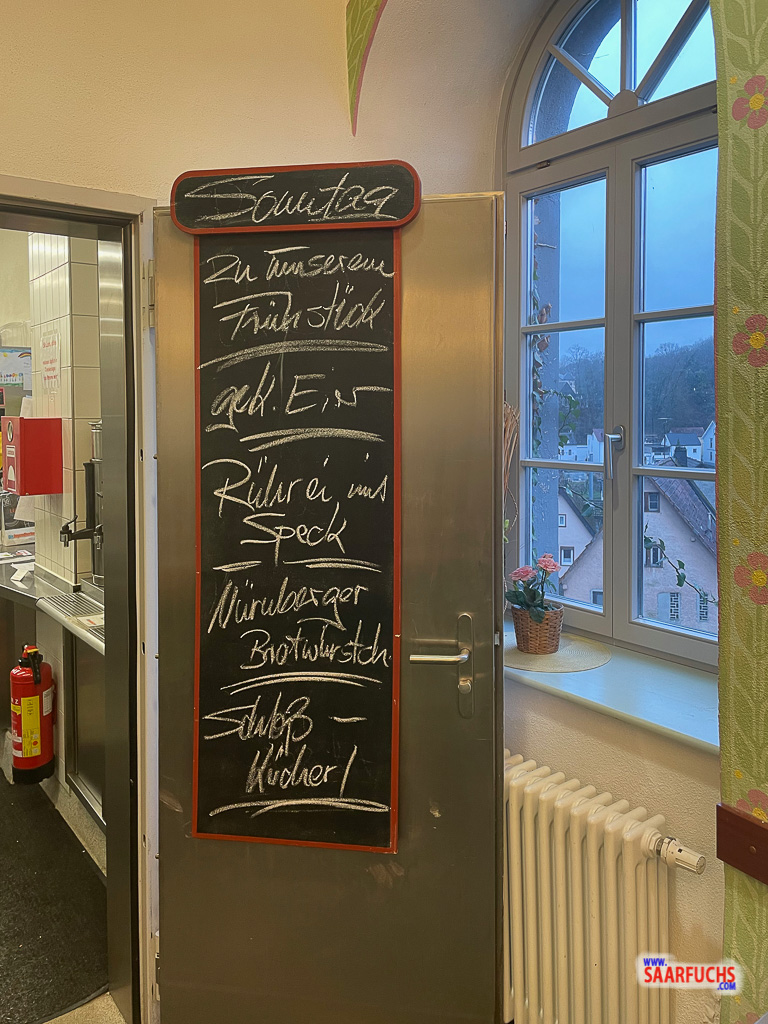 Sonntag
Zu unserem
Frühstück
gek. Eier
Rührei mit
Speck
Nürnberger
Bratwürstch.
Schloß -
Kücher!
WWW.
SAARFUCHS
.COM